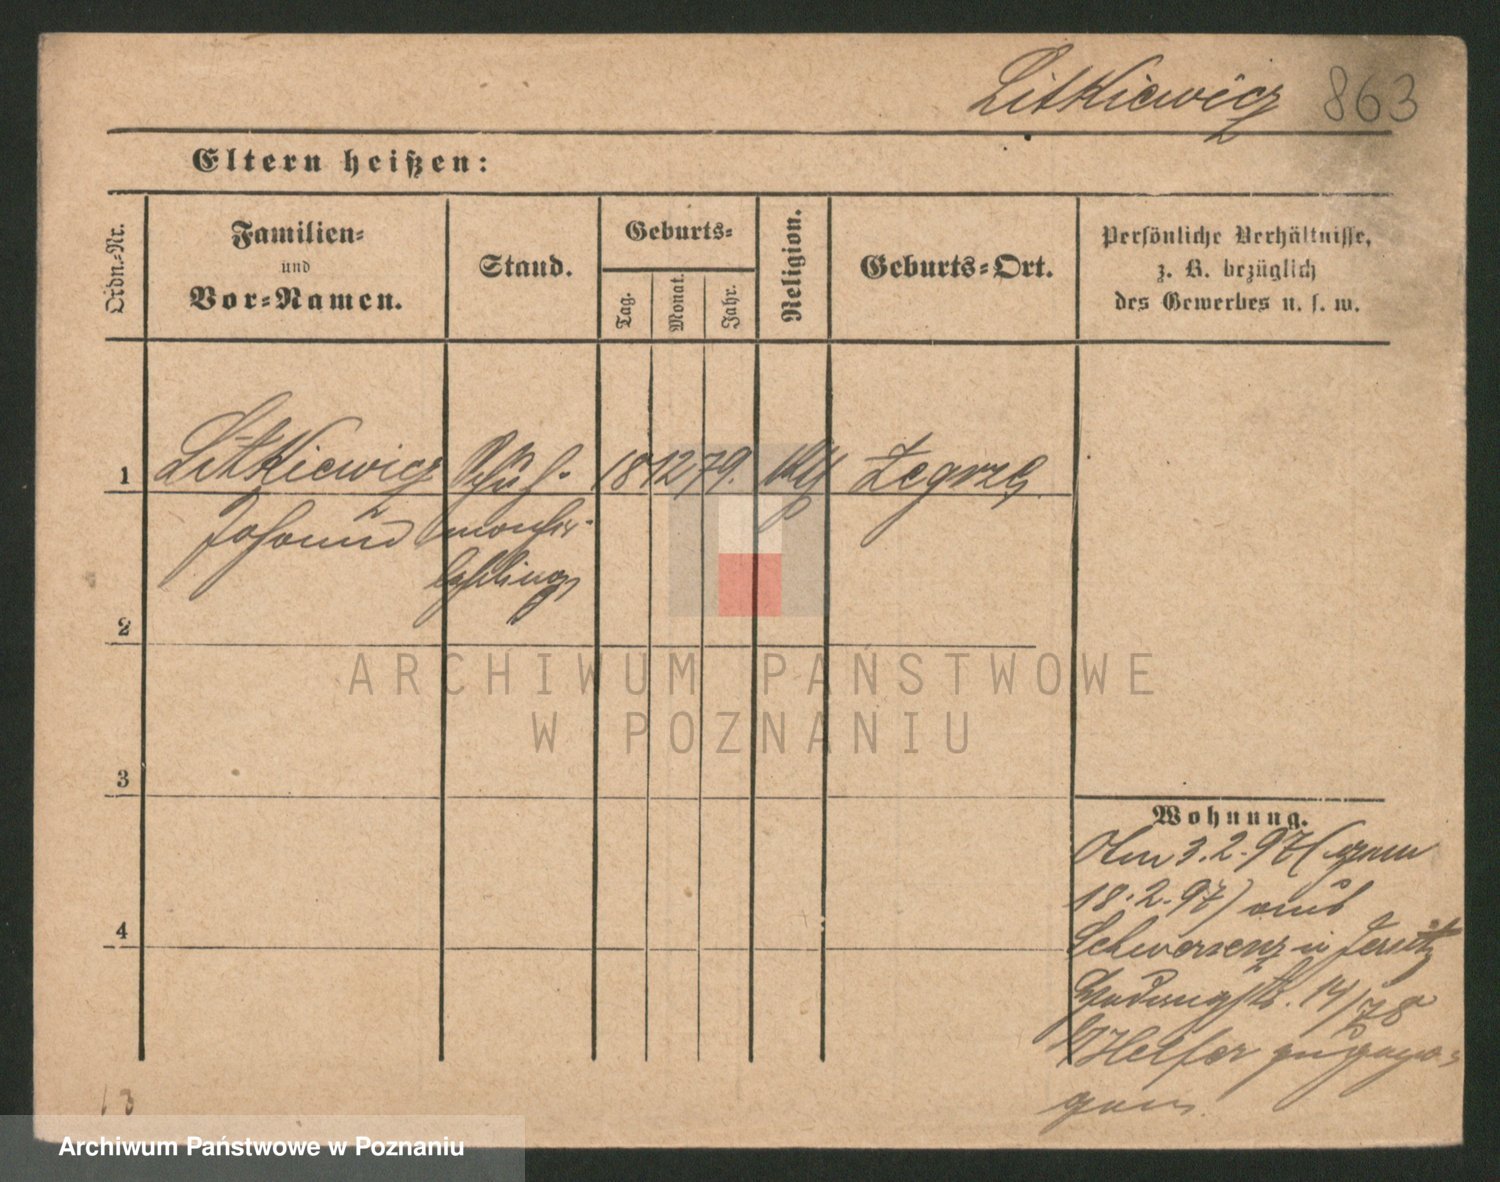 Litkiewicz 863
Eltern heißen:
Ordn.-Nr.
Familien-
und
Vor-Namen.
Stand.
Geburts-
Tag.
Monat.
Jahr.
Religion.
Geburts-Ort.
Persönliche Verhältnisse,
z. B. bezüglich
des Gewerbes u. s. w.
1 Litkiewicz Schuh- 18 12 79. Zegrze
Johann macher-
lehrling
2
3
4
ARCHIWUM PAŃSTWOWE
W POZNANIU
Wohnung.
Am 3.2.97 (gem
18.2.97) aus
Schwersenz in Jersitz
14/78
zugezo-
gen.
13
Archiwum Państwowe w Poznaniu